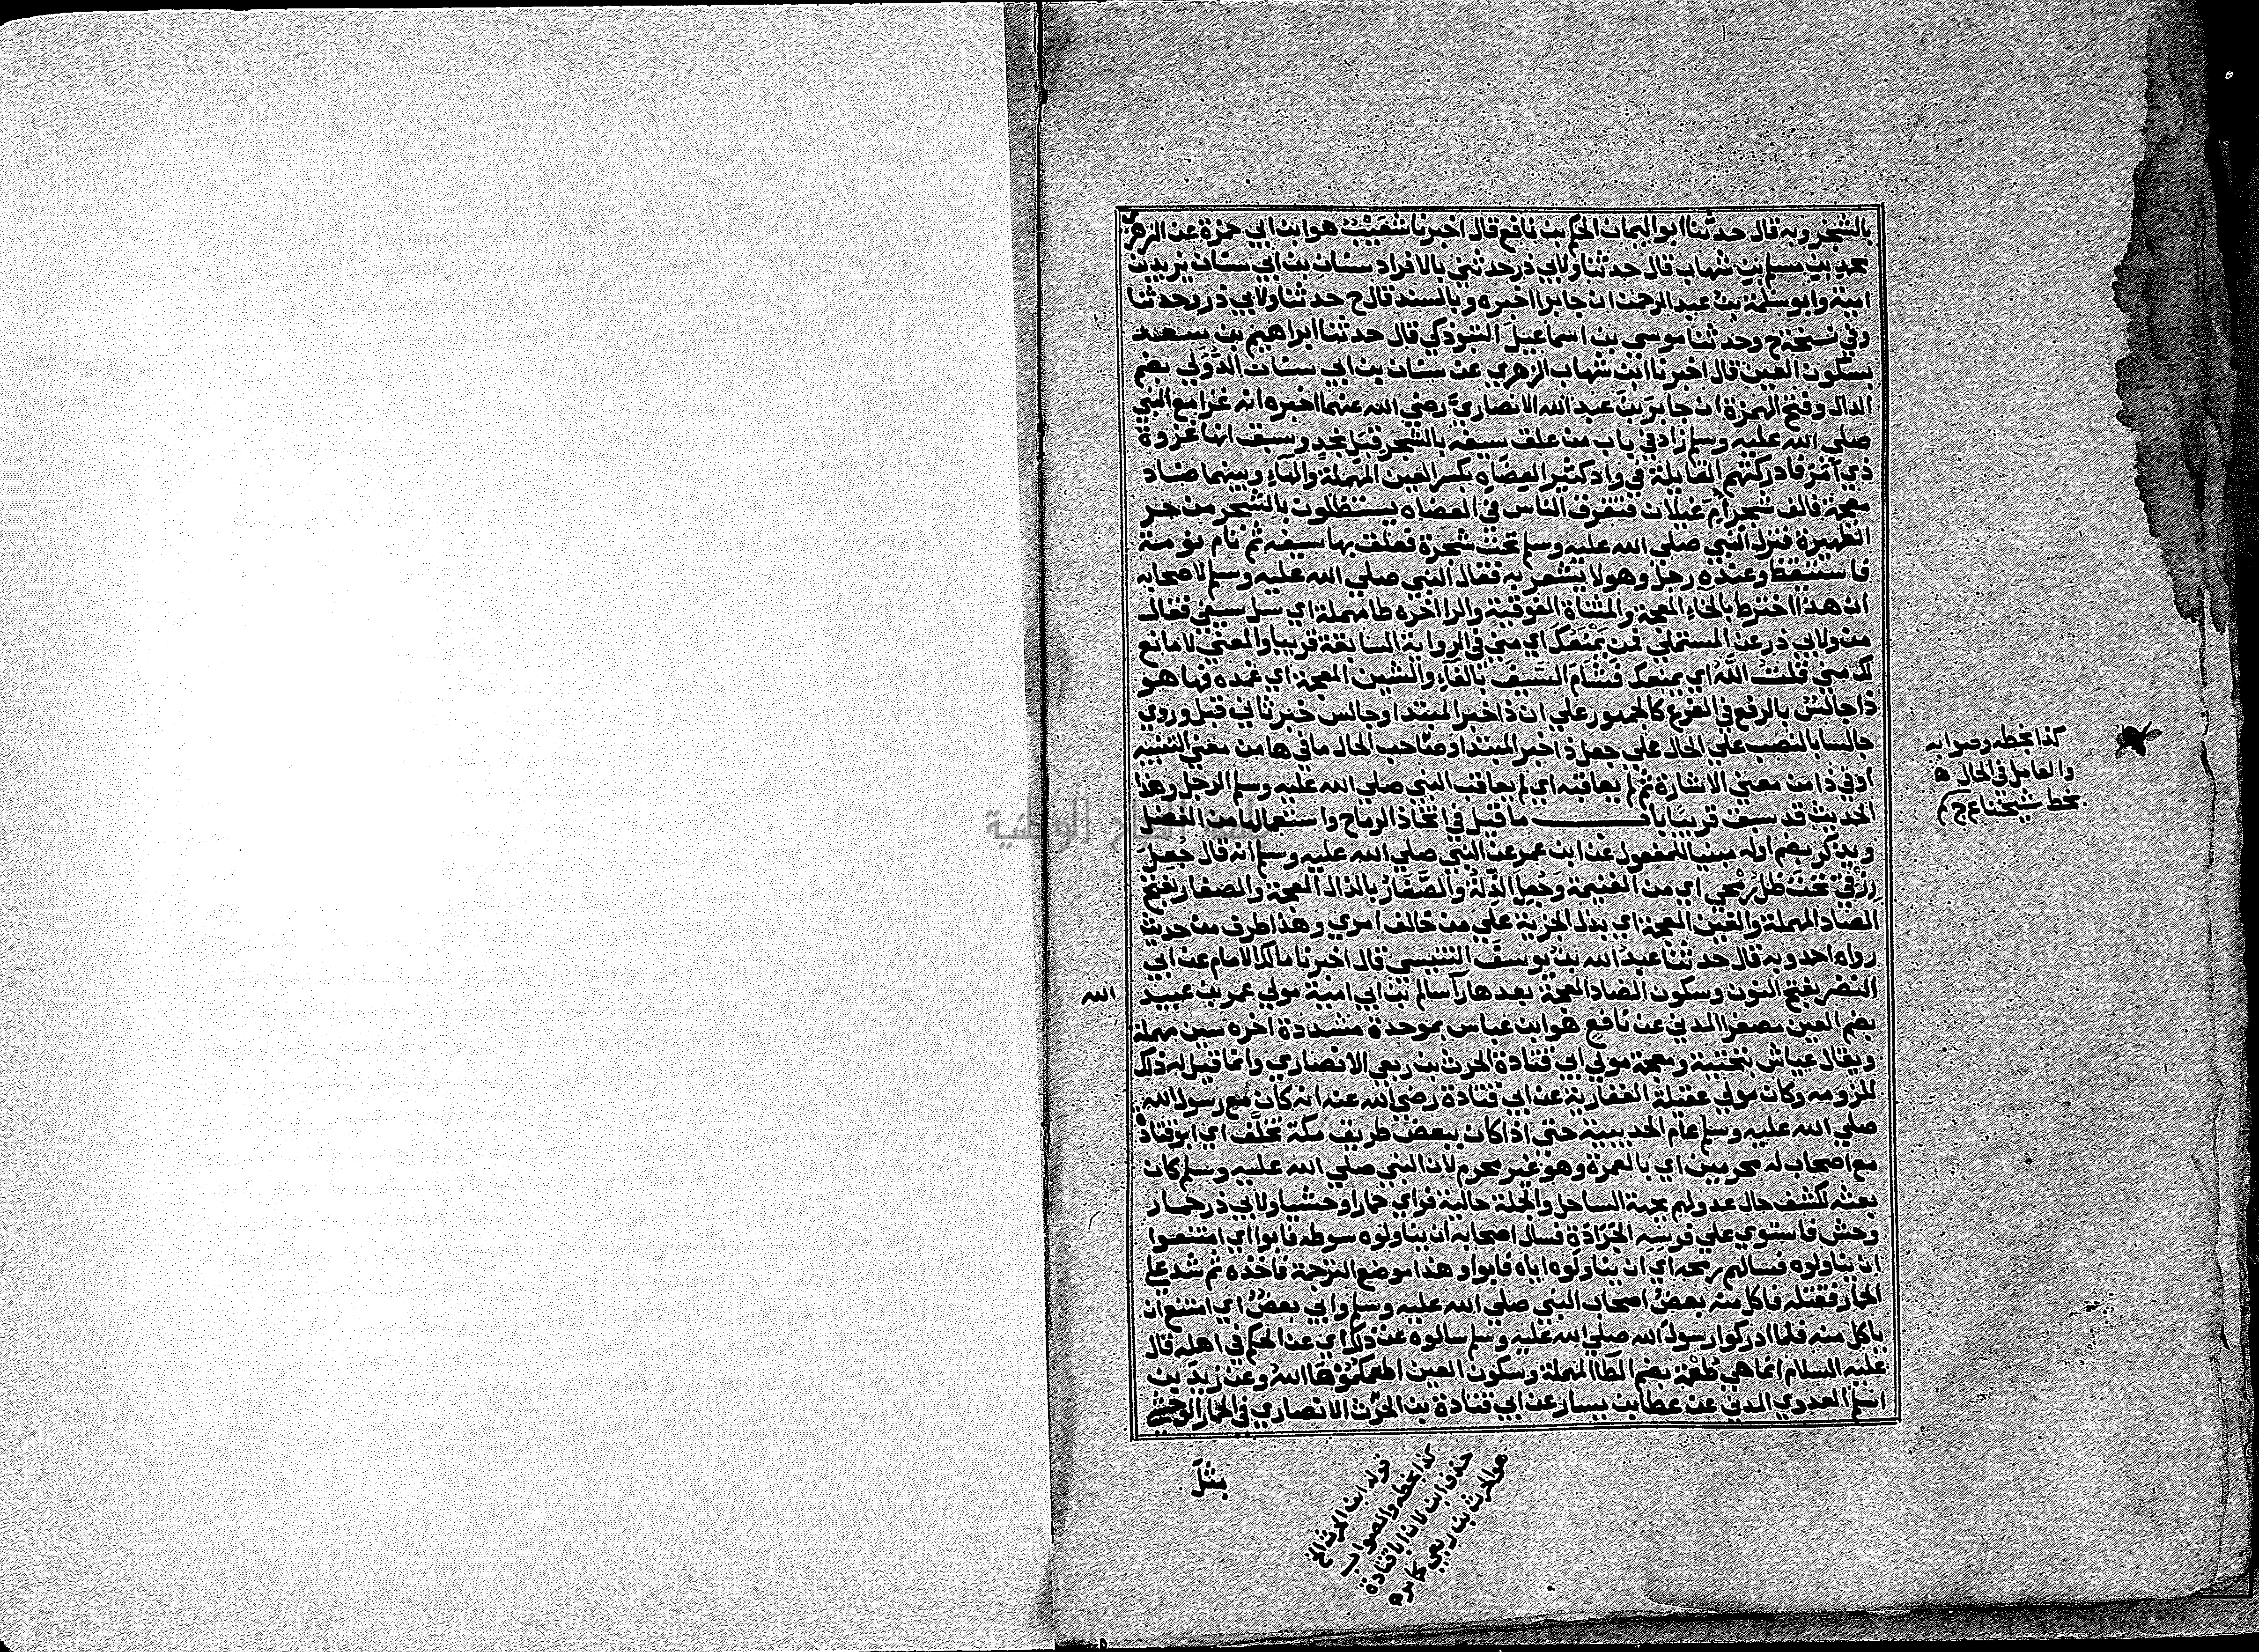 بالشجر وبه قال حدثنا ابو اليمان الحكم بن نافع قال اخبرنا شعيب هو ابن ابي حمزة عن الزهري
محمد بن مسلم بن شهاب قال حدثنا ولابي ذر حدثني بالافراد سنان بن ابي سنان يزيد بن
امية وابو سلمة بن عبد الرحمن ان جابرا اخبره وبالسند قال ح حدثنا ولابي ذر وحدثنا
وفي نسخة ح وحدثنا موسي بن اسماعيل التبوذكي قال حدثنا ابراهيم بن سعد
بسكون العين قال اخبرنا ابن شهاب الزهري عن سنان بن ابي سنان الدؤلي بضم
الدال وفتح الهمزة ان جابر بن عبد الله الانصاري رضي الله عنهما اخبره انه غزا مع النبي
صلي الله عليه وسلم زاد في باب من علق سيفه بالشجر قبل نجد وسبق انها غزوة
ذي امر فادركتهم القايلة في واد كثير العضاه بكسر العين المهملة والهاء وبينهما ضاد
معجمة فالف شجر ام غيلان فتفرق الناس في العضاه يستظلون بالشجر من حر
الظهيرة فنزل النبي صلي الله عليه وسلم تحت شجرة فعلق بها سيفه ثم نام نومة
فاستيقظ وعنده رجل وهو لا يشعر به فقال النبي صلي الله عليه وسلم لاصحابه
ان هذا اخترط بالخاء المعجمة والمثناة الفوقية والرا اخره طا مهملة اي سل سيفي فقال
من ولابي ذر عن المستملي فمن يمنعك اي مني في الرواية السابقة قريبا والمعني لا مانع
لك مني قلت الله اي يمنعك فشام السيف بالفاء والشين المعجمة اي غمده فها هو
ذا جالس بالرفع في الفرع كالجمهور علي ان ذا خبر المبتدا وجالس خبر ثاني قبل وروي
جالسا بالنصب علي الحال علي جعل ذا خبر المبتدا وصاحب الحال ما في ها من معني التنبيه
او في ذا من معني الاشارة ثم لم يعاقبه اي لم يعاقب النبي صلي الله عليه وسلم الرجل وهذا
الحديث قد سبق قريبا باب ما قيل في اتخاذ الرماح واستعمالها من الفضل
ويذكر بضم اوله مبنيا للمفعول عن ابن عمر عن النبي صلي الله عليه وسلم انه قال جعل
رزقي تحت ظل رمحي اي من الغنيمة وجعل الذلة والصغار بالذال المعجمة والصغار بفتح
الصاد المهملة والغين المعجمة اي بذل الجزية علي من خالف امري وهذا طرف من حديث
رواه احمد وبه قال حدثنا عبد الله بن يوسف التنيسي قال اخبرنا مالك الامام عن ابي
النضر بفتح النون وسكون الضاد المعجمة بعدها را سالم بن ابي امية مولي عمر بن عبيد
الله
بضم العين مصغرا المدني عن نافع هو ابن عباس بموحدة مشددة اخره سين مهملة
ويقال عياش بتحتية ومعجمة مولي ابي قتادة الحرث بن ربعي الانصاري وانما قيل له ذلك
للزومه وكان مولي عقيلة الغفارية عن ابي قتادة رضي الله عنه انه كان مع رسول الله
صلي الله عليه وسلم عام الحديبية حتي اذا كان ببعض طريق مكة تخلف اي ابو قتادة
مع اصحاب له محرمين اي بالعمرة وهو غير محرم لان النبي صلي الله عليه وسلم كان
بعثه لكشف حال عدو لهم بجهة الساحل والجملة حالية فراي حمارا وحشيا ولابي ذر حمار
وحش فاستوي علي فرسه الجرادة فسال اصحابه ان يناولوه سوطه فابوا اي امتنعوا
ان يناولوه فسالهم رمحه اي ان يناولوه اياه فابوا وهذا موضع الترجمة فاخذه ثم شد علي
الحمار فقتله فاكل منه بعض اصحاب النبي صلي الله عليه وسلم وابي بعض اي امتنع ان
ياكل منه فلما ادركوا رسول الله صلي الله عليه وسلم سالوه عن ذلك اي عن الحكم في اهله قال
عليه السلام انما هي طعمة بضم الطا المهملة وسكون العين اطعمكموها الله وعن زيد بن
اسلم العدوي المدني عن عطا بن يسار عن ابي قتادة بن الحرث الانصاري في الحمار الوحشي
بمثل
كذا بخطه وصوابه
والعامل في الحال ه
بخط شيخنا ع ج م
قوله ابن الحرث الخ
كذا بخطه والصواب
حذف ابن لان ابا قتادة
هو الحرث بن ربعي كما مره
جامعة النجاح الوطنية